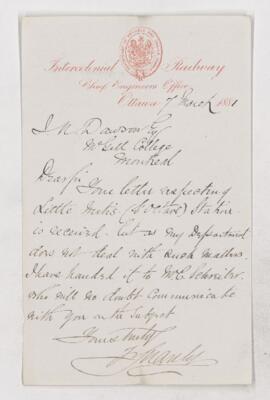 Intercolonial Railway
Chief Engineer's Office
Ottawa 7 March 1881
J W Dawson Esq
McGill College
Montreal
Dear Sir
Your letter respecting
Little Metis (St Octave) Station
is received. but as my Department
does not deal with such matters.
I have handed it to Mr C. Schreiber.
who will no doubt Communicate
with you on the Subject
Yours truly